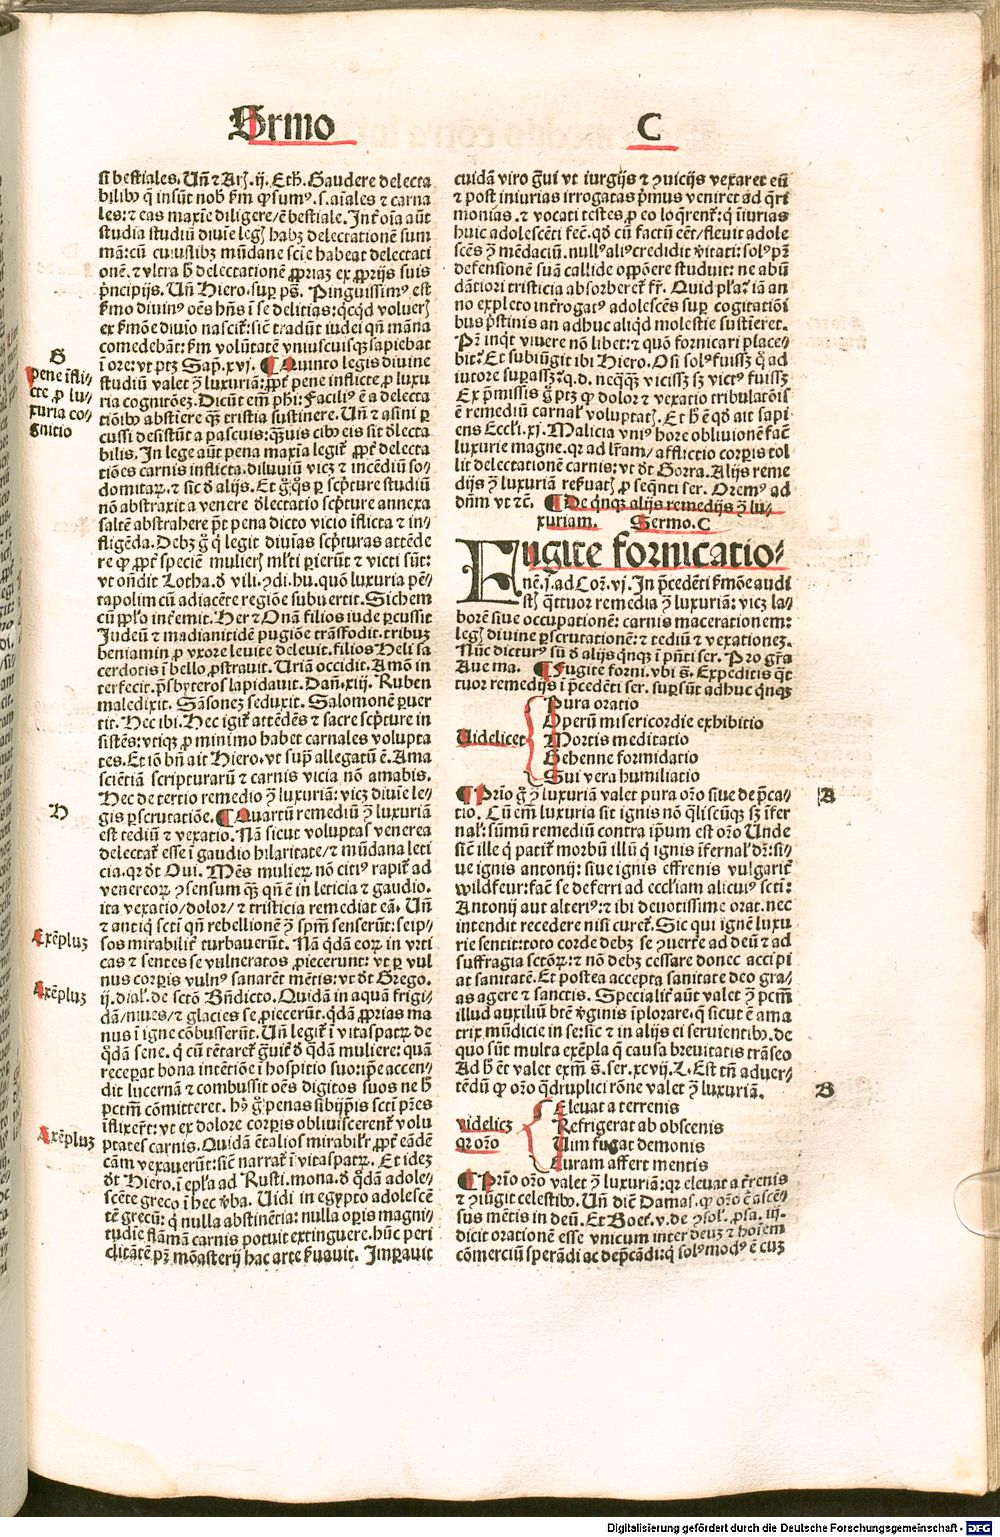 Sermo
C
si bestiales. Uñ ⁊ Arꝭ. ij. Etħ. Gaudere delecta
les: ⁊ eas maxīe diligere/ ē bestiale. Inť oīa aūt
studia studiū diuīe legꝭ habꝫ delectationē sum
mā: cū cuiuslibꝫ mūdane scīe habeat delectati
onē. ⁊ vltra ħ delectationē ꝓpriaꝫ ex ꝓprijs suis
pⁱncipijs. Uñ Hiero. suꝑ pš. Pinguissimꝰ est
ẜmo diuinꝰ oēs hñs ī se delitias: qͥcqͥd voluerꝭ
ex ẜmōe diuīo nascit᷑: sič tradūt iudei qñ māna
comedebāt: ẜm volūtatē vniuscuiusqꝫ sapiebat
ī ore: vt ptꝫ Sap̄. xvj. ¶ Quinto legis diuine
G
pene īfli⸗
cte ꝓ lu⸗
xuria co⸗
gnitio
studiū valet ꝯͣ luxuriā: ꝓpť pene inflicte ꝓ luxu
ria cognitōeꝫ. Dicūt em̄ phī: Facilius ē a delecta
tiōibꝰ abstīere qͣꝫ tristia sustinere. Uñ ⁊ asini ꝑ
cussi desistūt a pascuis: qͣꝫuis cibꝰ eis sit ď̄lecta
bilis. In lege aūt pena maxīa legit᷑ ꝓpť delecta
tiōes carnis inflicta. diluuiū vicꝫ ⁊ incēdiū so⸗
domitaꝝ. ⁊ sic ď alijs. Et gͦ qͥs ꝑ scpͥture studiū
nō abstraxit a venere ď̄lectatio scpͥture annexa
saltē abstrahere pͭt pena dicto vicio īflicta ⁊ in⸗
fligēda. Debꝫ gͦ qͥ legit diuīas scpͥturas attēde
re qꝫ ꝓpť speciē mulierꝭ ml̓ti ꝑierūt ⁊ victi sūt:
vt oñdit Lotha. ď vili. ꝯdi. hu. quō luxuria pē⸗
tapolim cū adiacēte regiōe subuertit. Sichem
cū pplo inťemit. Her ⁊ Onā filios iude ꝑcussit
Judeū ⁊ madianitidē pugiōe trāsfodit. tribuꝫ
beniamin ꝓ vxore leuite deleuit. filios Heli sa
cerdotis ī bello ꝓstrauit. Uriā occidit. Amō in
terfecit. pͤsbyteros lapidauit. Dañ. xiij. Ruben
maledixit. Sāsoneꝫ seduxit. Salomonē ꝑuer
tit. Hec ibi. Hec igit᷑ attēdēs ⁊ sacre scpͥture in
sistēs: vtiqꝫ ꝓ minimo habet carnales volupta
tes. Et iō bñ ait Hiero. vt supͣ allegatū ē. Ama
sciētiā scripturarū ⁊ carnis vicia nō amabis.
Hec de tertio remedio ꝯͣ luxuriā: vicꝫ diuīe le⸗
H
gis ꝑscrutatiōe. ¶ Quartū remediū ꝯͣ luxuriā
est tediū ⁊ vexatio. Nā sicut voluptas venerea
delectať esse ī gaudio hilaritate/ ⁊ mūdana leti
cia. qꝛ ďt Oui. Mēs mulieꝝ nō citiꝰ rapit᷑ ad
venereoꝝ ꝯsensum qͣꝫ qñ ē in leticia ⁊ gaudio.
ita vexatio/ dolor/ ⁊ tristicia remediat eā. Uñ
⁊ antiqͥ scti qñ rebellionē ꝯͣ spm̄ senserūt: seip⸗
Exēpluꝫ
sos mirabiliť turbauerūt. Nā qͥdā eoꝝ in vrti
cas ⁊ sentes se vulneratos ꝓiecerunt: vt ꝑ vul
nus corꝑis vulnꝰ sanarēt mētis: vt ďt Grego.
Exēpluꝫ
ij. dial̓. de sctō Bñdicto. Quidā in aquā frigi⸗
dā/ niues/ ⁊ glacies se ꝓiecerūt. qͥdā ꝓprias ma
nus ī igne cōbusserūt. Uñ legit᷑ ī vitaspatꝝ de
qͦdā sene. qͥ cū tētaret᷑ gͣuiť ď qͣdā muliere: quā
receꝑat bona intētiōe ī hospitio suo: ip̄e accen⸗
dit lucernā ⁊ combussit oēs digitos suos ne ħ
pctm̄ cōmitteret. hꝰ gͦ penas sibiipīs scti pr̄es
īflixert̄: vt ex dolore corꝑis obliuiscerent᷑ volu
Exēpluꝫ
ptates carnis. Quidā ētalios mirabilr̄ ꝓpť eādē
cām vexauerūt: sič narrat᷑ ī vitaspatꝝ. Et ideꝫ
ďt Hiero. ī epl̓a ad Rusti. mona. ď qͦdā adole⸗
scēte greco ī hec v̓ba. Uidi in egypto adolescē
tē grecū: qͥ nulla abstinētia: nulla oꝑis magni⸗
tudīe flāmā carnis potuit extinguere. hūc peri
clitātē pͬ mōasterij hac arte ẜuauit. Imꝑauit
cuidā viro gͣui vt iurgijs ⁊ ꝯuicijs vexaret eū
⁊ post iniurias irrogatas pͥmus veniret ad qͥri
monias. ⁊ vocati testes. ꝓ eo loqͥrent᷑: qͥ īiurias
huic adolescēti fec̄. qď cū factū eēt/ fleuit adole
scēs ꝯͣ mēdaciū. nullꝰ aliꝰ credidit v̓itati: solꝰ pr̄
defensionē suā callide oppōere studuit: ne abū
dātiori tristicia absorberet᷑ fr̄. Quid plͣa? iā an
no expleto inťrogatꝰ adolescēs suꝑ cogitatiōi
bus pͥstinis an adhuc aliqͥd molestie sustīeret.
Pr̄ inqͥt viuere nō libet: ⁊ quō fornicari place⸗
bit? Et subiūgit ibi Hiero. Qsi solꝰ fuissꝫ qͥ ad
iutore suꝑassꝫ? q. d. neqͣqͣꝫ vicissꝫ sꝫ victꝰ fuissꝫ
Ex p̄missis gͦ ptꝫ qꝫ dolor ⁊ vexatio tribulatōis
ē remediū carnal̓ voluptatꝭ. Et ħ ē qď ait sapi
ens Eccli. xj. Malicia vniꝰ hore obliuionē fac̄
luxurie magne. qꝛ ad lr̄am/ afflictio corꝑis tol
lit delectationē carnis: vt ďt Gorra. Alijs reme
dijs ꝯͣ luxuriā reẜuatꝭ ꝓ seqn̄ti ser. Oremꝰ ad
dn̄m vt ⁊č. ¶ De qͥnqꝫ alijs remedijs ꝯͣ lu⸗
xuriam. Sermo. C
Fugite fornicatio⸗
nē. j. ad Coꝛ̄. vj. In p̄cedēti ẜmōe audi
stꝭ qͣttuor remedia ꝯͣ luxuriā: vicꝫ la⸗
borē siue occupationē: carnis macerationem:
legꝭ diuine ꝑscrutationē: ⁊ tediū ⁊ vexationeꝫ.
Nūc dicturꝰ sū ď alijs qͥnqꝫ ī pn̄ti ser. Pro gr̄a
Aue ma. ¶ Fugite forni. vbi š. Expeditis qͣt
tuor remedijs ī p̄cedēti ser. suꝑsūt adhuc qͥnqꝫ
Uidelicet
Pura oratio
Operū misericordie exhibitio
Mortis meditatio
Gehenne formidatio
Sui vera humiliatio
A
¶ Prīo gͦ ꝯͣ luxuriā valet pura orō siue depͤca⸗
tio. Cū em̄ luxuria sit ignis nō qͣliscūqꝫ sꝫ īfer
nal̓: sūmū remediū contra ip̄um est orō Unde
sič ille qͥ patit᷑ morbū illū qͥ ignis īfernal̓ dr̄: si⸗
ue ignis antonij: siue ignis effrenis vulgariť
wildfeur: fac̄ se deferri ad eccl̓iam alicuiꝰ scti:
Antonij aut alteriꝰ: ⁊ ibi deuotissime orat. nec
intendit recedere nisi curet᷑. Sic qui ignē luxu
rie sentit: toto corde debꝫ se ꝯuerťe ad deū ⁊ ad
suffragia sctōꝝ: ⁊ nō debꝫ cessare donec accipi
at sanitatē. Et postea accepta sanitate deo gra⸗
as agere ⁊ sanctis. Specialiť aūt valet ꝯͣ pctm̄
illud auxiliū btē v̓ginis īplorare. qͥ sicut ē ama
trix mūdicie in se: sič ⁊ in alijs ei seruientibꝰ. de
quo sūt multa exēpla qͥ causa breuitatis trāseo
Ad ħ ēt valet exm̄ š. ser. xcvij. L. Est tn̄ aduer⸗
B
tēdū qꝫ orō qͣdruplici rōne valet ꝯͣ luxuriā.
videlicꝫ
qꝛ orō
Eleuat a terrenis
Refrigerat ab obscenis
Uim fugat demonis
Auram affert mentis
¶ Prīo orō valet ꝯͣ luxuriā: qꝛ eleuat a ťrenis
⁊ ꝯiūgit celestibꝰ. Uñ dic̄ Damas. qꝫ orō ē ascē⸗
sus mētis in deū. Et Boet̄. v. de ꝯsol̓. ꝓsa. iij.
dicit orationē esse vnicum inter deuꝫ ⁊ hoīem
cōmerciū sperādi ac dep̄cādi: qͥ solꝰ modꝰ ē cuꝫ
Digitalisierung gefördert durch die Deutsche Forschungsgemeinschaft - DFG